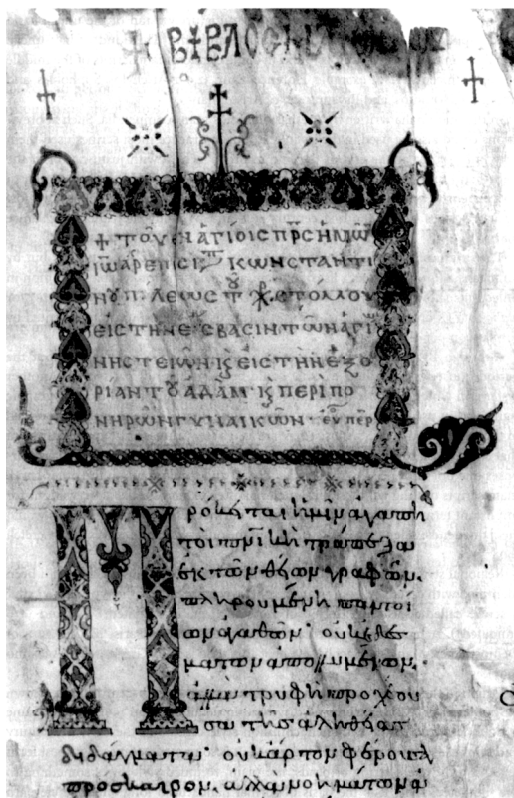 ΒΙΒΛΟΣ
+ ΤΟΥ ΕΝ ΑΓΙΟΙΣ ΠΡΣ ΗΜΩ
ΙΩ ΑΡΕΠΣΚ ΚΩΝΣΤΑΝΤΙ
ΝΟΥΠΟΛΕΩΣ ΤΟΥ ΧΡΥΣΟΣΤΟΜΟΥ
ΕΙΣ ΤΗΝ ΕΣΒΑΣΙΝ ΤΩΝ ΑΓΙ
ΝΗΣΤΕΙΩΝ Κ ΕΙΣ ΤΗΝ ΕΞΟ
ΡΙΑΝ ΤΟΥ ΑΔΑΜ Κ ΠΕΡΙ ΠΟ
ΝΗΡΩΝ ΓΥΝΑΙΚΩΝ
Πρόκειται ἡμῖν ἀγαπη
τοὶ πνϊκὴ τράπεζα
ἐκ τῶν θείων γραφῶν.
πληρουμένη παντοί
ων ἀγαθῶν· οὐκ ἐδεσ
μάτων ἀπολλυμένων.
τρυφὴ προχέου
σα τῆς ἀληθείας
διδάγματα· οὐ καρπὸν φέρουσα
πρόσκαιρον. ἀλλὰ